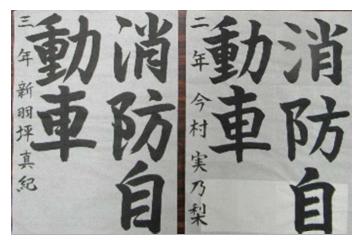 消防自
動車
二年 今村実乃梨
消防自
動車
三年 新羽坪真紀